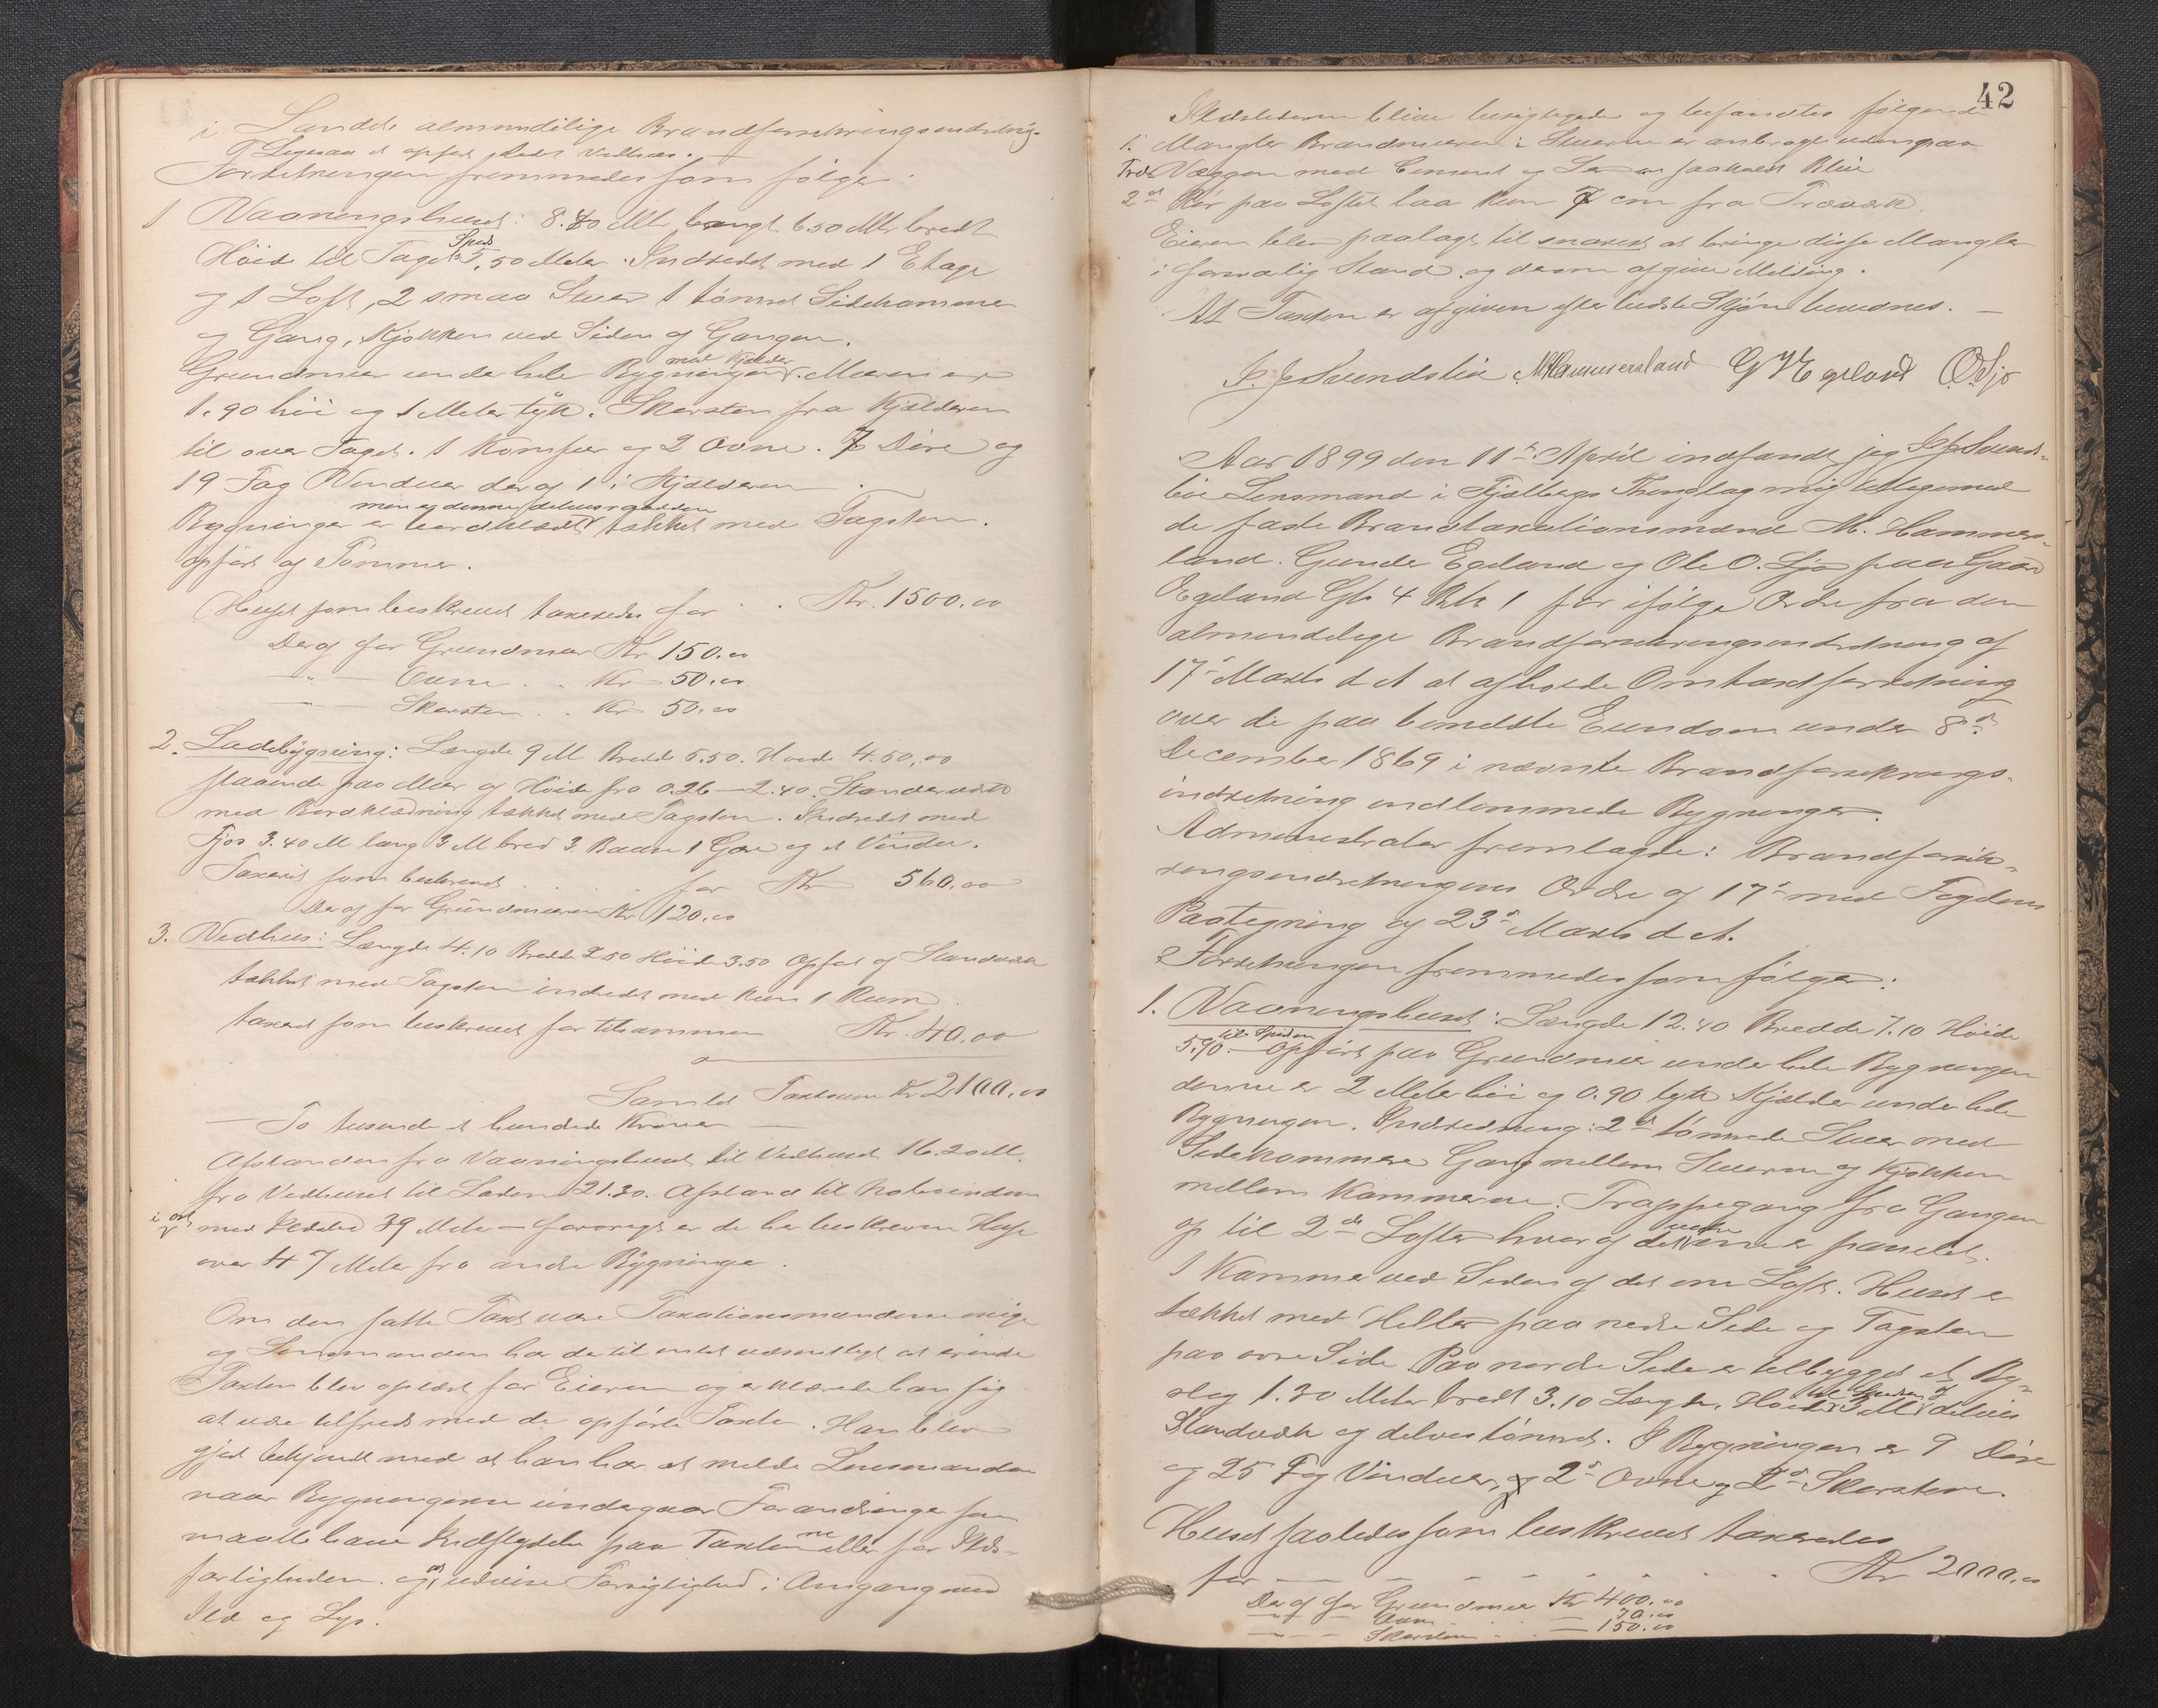 i Landets almindelige Brandforsikringsindretning.
Ligesaa et opført Vedhus.
Forretningen fremmedes som følger:
1 Vaaningshuset: 8.80 Mtr langt 6.50 Mtr bredt
Høide til Tagets Spids 5,50 Meter. Indredet med 1 Etage
og 1 Loft, 2 smaa Stuer 1 tømret Sidekammer
og Gang, Kjøkken ved Siden af Gangen.
Grundmur under hele Bygningen med Kjelder. Muren er
1.90 høi og 1 Meter tyk. Skorsten fra Kjælderen
til over Taget. 1 Komfur og 2 Ovne. 7 Døre og
19 Fag Vinduer deraf 1 i Kjælderen.
Bygningen er bordklædt men denne delvis raadden tækket med Tagsten.
opført af Tømmer.
Huset som beskrevet taxeredes for . . Kr. 1500.00
Deraf for Grundmur Kr 150.00
" Ovne . . Kr 50.00
" Skorsten . . Kr 50.00
2. Ladebygning: Længde 9 M Bredde 5.50. Høide 4.50,00
staaende paa Mur af Høide fra 0.26 – 2.40. Standerværk
med Bordklædning tækket med Tagsten. Indredet med
Fjøs 3.40 M lang 3 M bred 3 Baase 1 Gare og et Vindu.
Taxeret som beskrevet . . . for Kr 560.00
Deraf for Grundmuren Kr 120.00
3. Vedhus: Længde 4.10 Bredde 2.50 Høide 3.50 Opført af Standværk
tækket med Tagsten indredt med kun 1 Rum.
taxeret som beskrevet for tilsammen Kr. 40.00
Samlet Taxtsum Kr 2100.00
– To tusende et hundrede Kroner –
Afstanden fra Vaaningshuset til Vedhuset 16.20 M.
fra Vedhuset til Laden 21.30. Afstand til Naboeiendom
med Ildsted 39 Meter – forøvrigt er de her beskrevne Huse
over 47 Meter fra andre Bygninger.
Om den satte Taxt vare Taxationsmændene enige
og Lensmanden har dertil intet væsentligt at erindre
Taxten blev oplæst for Eieren og erklærede han sig
at være tilfreds med de opførte Taxter. Han blev
gjort bekjendt med at han har at melde Lensmanden
naar Bygningerne undergaar Forandringer som
maatte have Indflydelse paa Taxterne eller for Ilds-
farligheden og at udvise Forsigtighed i Omgang med
Ild og Lys.
42
Ildstederne bleve besigtigede og befandtes følgende
1. Mangler Brandmuren i Stuerne er anbragt udenpaa
Træ Væggen med Cement og saakaldt Blik
2 et Rør paa Loftet laa kun 7 cm fra Træværk.
Eieren blev paalagt til snarest at bringe disse Mangler
i forsvarlig Stand og derom afgive Melding.
At Taxten er afgiven efter bedste Skjøn bevidnes. –
J. J. Svendsbøe M Hammersland G H Egeland O. Sjo
Aar 1899 den 11te April indfandt jeg J J Svends-
bøe Lensmand i Fjelbergs Thinglag mig tilligemed
de faste Brandtaxationsmænd M. Hammers-
land. Gunder Egeland og Ole O. Sjo paa Gaard
Egeland Gb 4 Bk 1 for ifølge Ordre fra den
almindelige Brandforsikringsindretning af
17de Marts d A at afholde Omtaxtforretning
over de paa bemeldte Eiendom under 8de
December 1869 i nævnte Brandforsikrings-
indretning indlemmede Bygninger.
Administrator fremlagde: Brandforsik-
ringsindretningens Ordre af 17de med Fogdens
Paategning af 23de Marts d A.
Forretningen fremmedes som følger:
1. Vaaningshuset: Længde 12.40 Bredde 7.10 Høide
5.90 til Spidsen – Opført paa Grundmur under hele Bygningen
denne er 2 Meter høi og 0.90 tyk Kjælder under hele
Bygningen. Indredning: 2de tømrede Stuer med
Sidekammere Gang mellem Stuerne og Kjøkken
mellem Kammerne. Trappegang fra Gangen
op til 2de Lofter hvoraf det ene er panelet.
1 Kammer ved Siden af det ene Loft. Huset er
tækket med Heller paa nedre Side og Tagsten
paa øvre Side. Paa nordre Side er tilbygget et Bi-
slag 1.30 Meter bredt 3.10 Længde. Høide til Spidsen 3 M af delvis
Standværk og delvis tømret. I Bygningen er 9 Døre
og 25 Fag Vinduer, 2de Ovne og 2de Skorstene.
Huset saaledes som beskrevet taxeredes
for – – – – – – – . . Kr 2000.00
Deraf for Grundmur Kr 400.00
" Ovne – 70.00
" Skorsten . . – 150.00